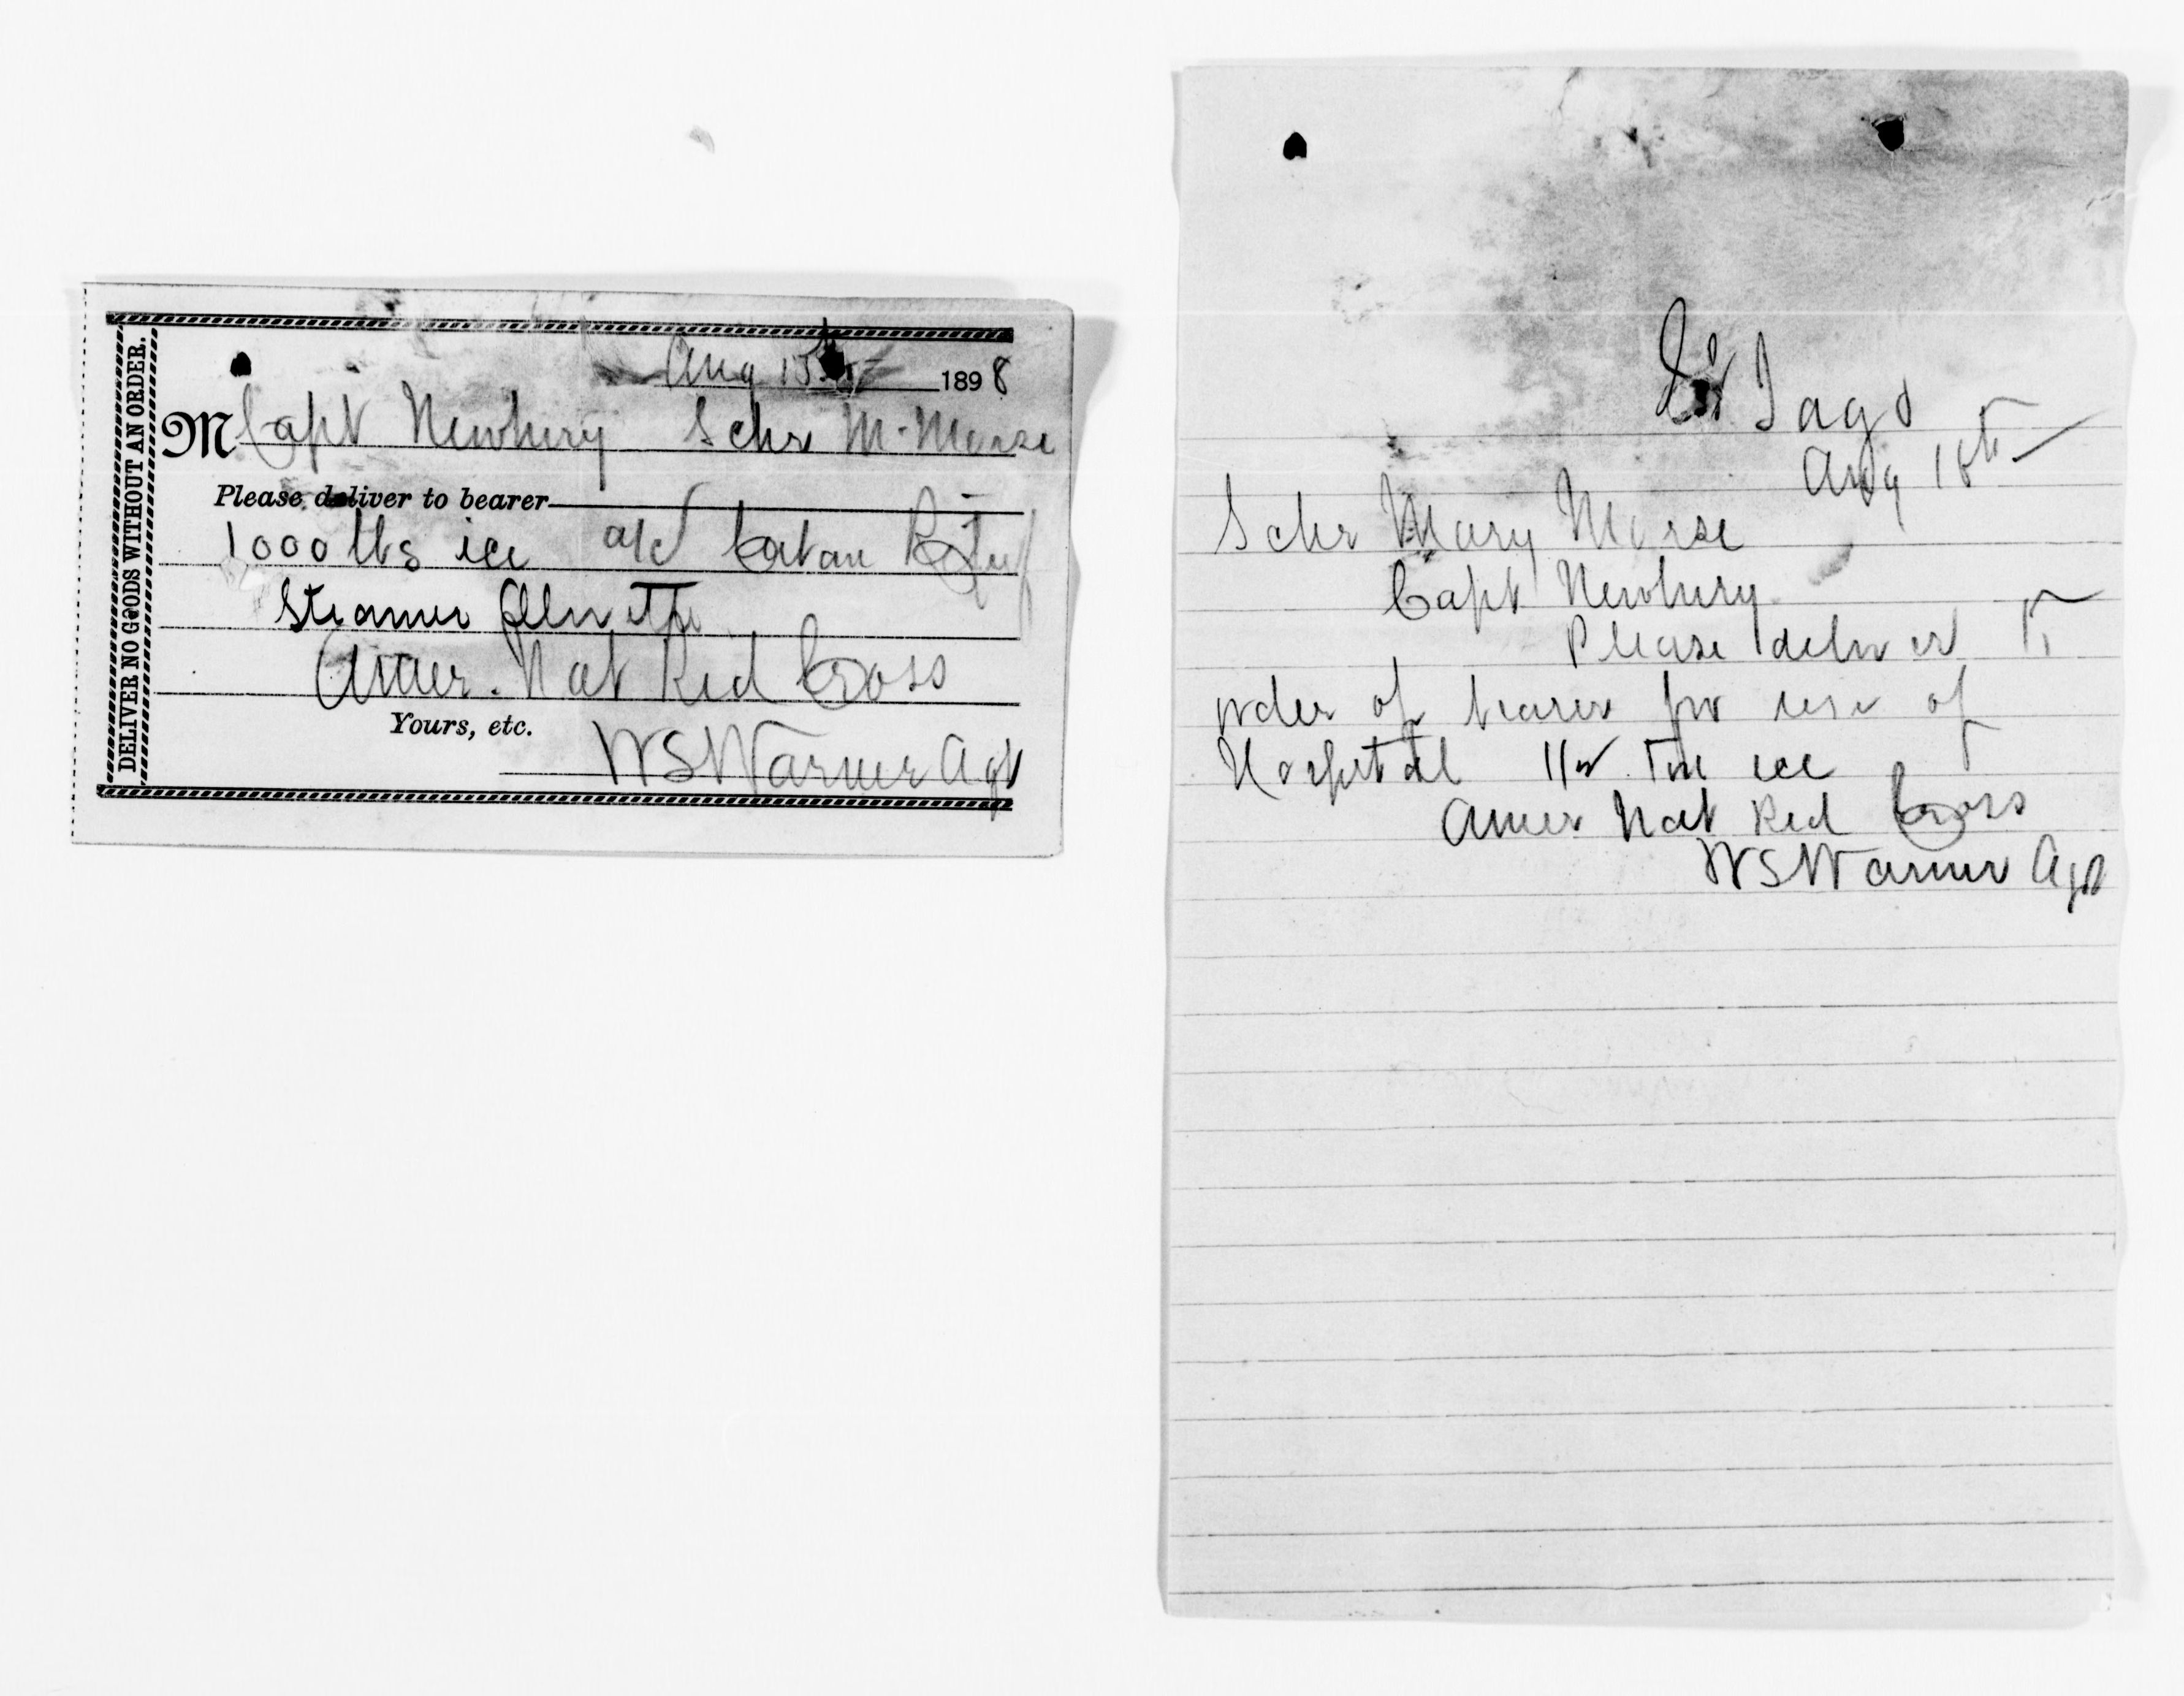 DELIVER NO GOODS WITHOUT AN ORDER.
Aug 15th 1898
M Capt Newbury Schr M. Morse
Please deliver to bearer
1000 lbs ice a/c Cuban Relief
Steamer Olivette
Amer. Nat Red Cross
Yours, etc.
W S Warner Agt
St Iago
Aug 18th
Schr Mary Morse
Capt Newbury
Please deliver to
order of bearer for use of
Hospital Ton ice
Amer Nat Red Cross
W S Warner Agt